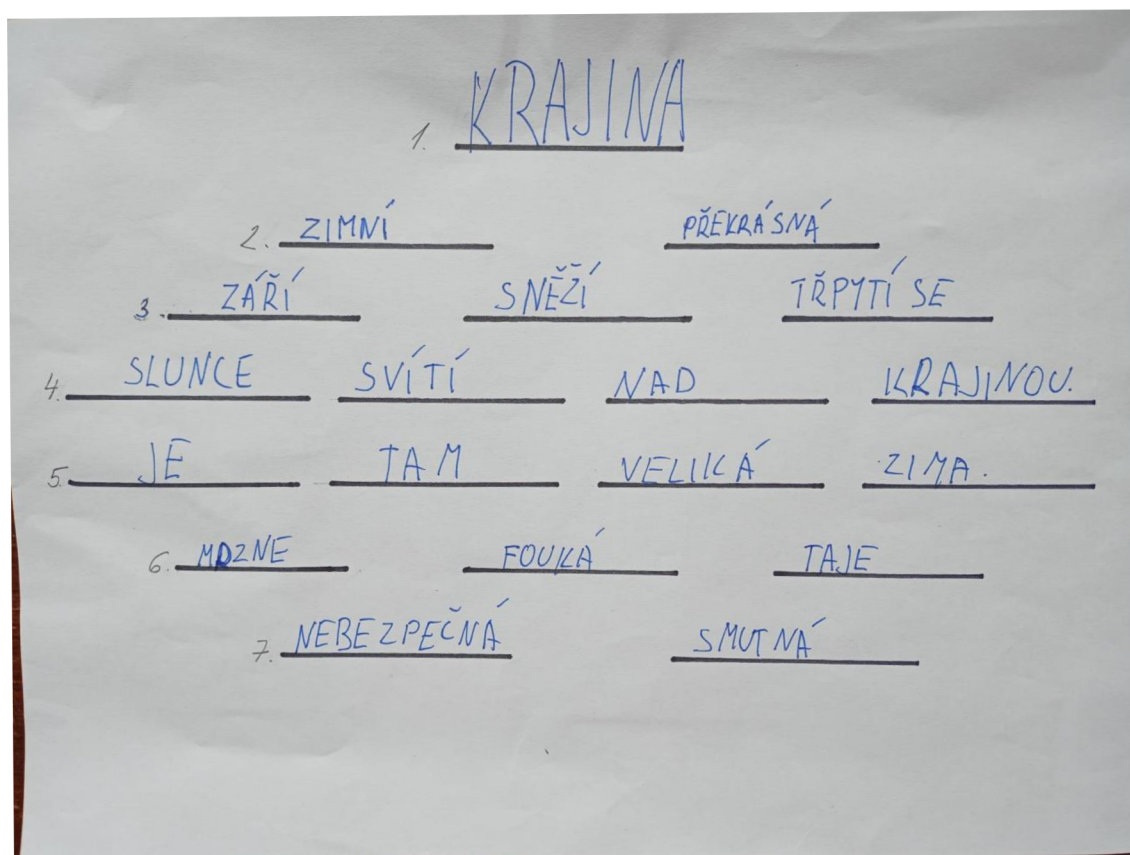 1. KRAJINA
2. ZIMNÍ PŘEKRÁSNÁ
3. ZÁŘÍ SNĚŽÍ TŘPYTÍ SE
4. SLUNCE SVÍTÍ NAD KRAJINOU.
5. JE TAM VELIKÁ ZIMA.
6. MRZNE FOUKÁ TAJE
7. NEBEZPEČNÁ SMUTNÁ